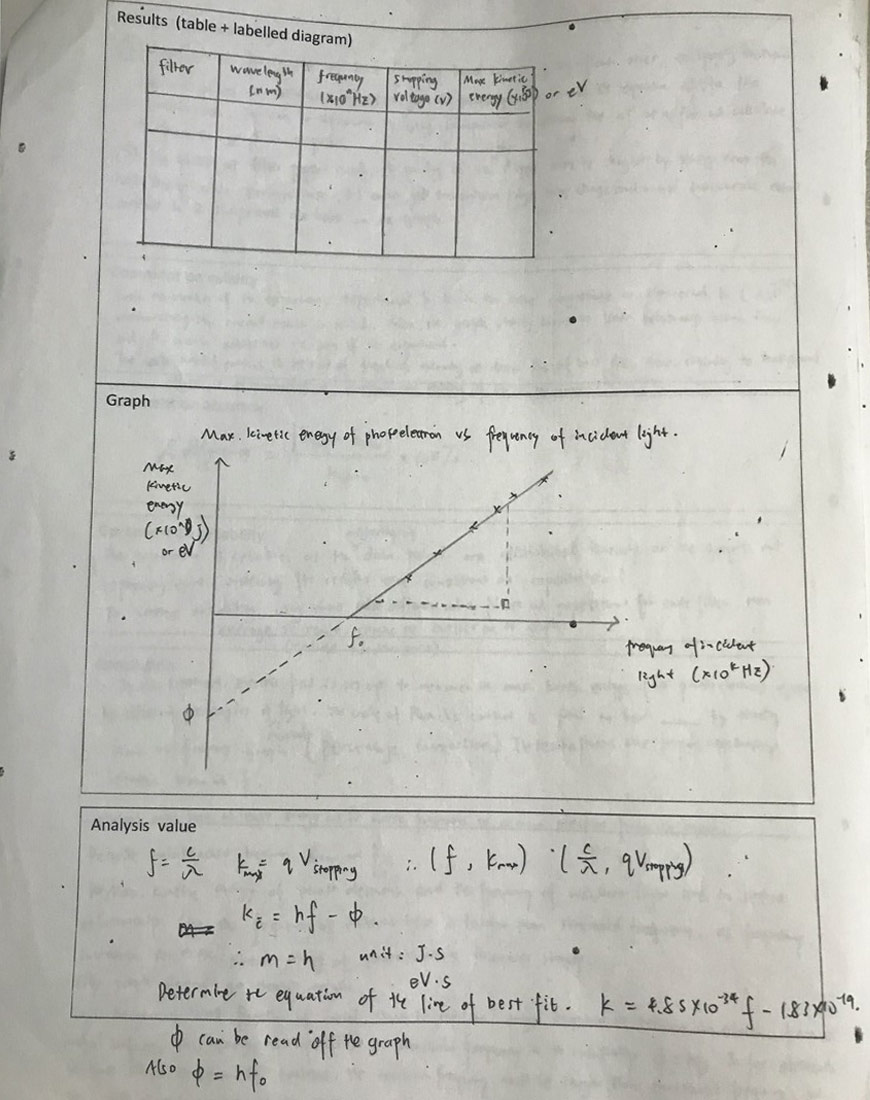 Results (table + labelled diagram)
filter
wavelength
(nm)
frequency
(×10ⁿHz)
stopping
voltage (V)
Max kinetic
energy
or eV
Graph
Max. kinetic energy of photoelectron vs frequency of incident light.
Max
kinetic
energy
or eV
f₀
frequency of incident
light
ϕ
Analysis value
f = c/λ   K_max = q V_stopping   ∴ (f, K_max)   (c/λ, qV_stopping)
K_ē = hf - ϕ.
∴ m = h   unit: J·s
eV·s
Determine the equation of the line of best fit.   K = 4.85×10⁻³⁴ f - 1.83×10⁻¹⁹.
ϕ can be read off the graph
Also ϕ = hf₀